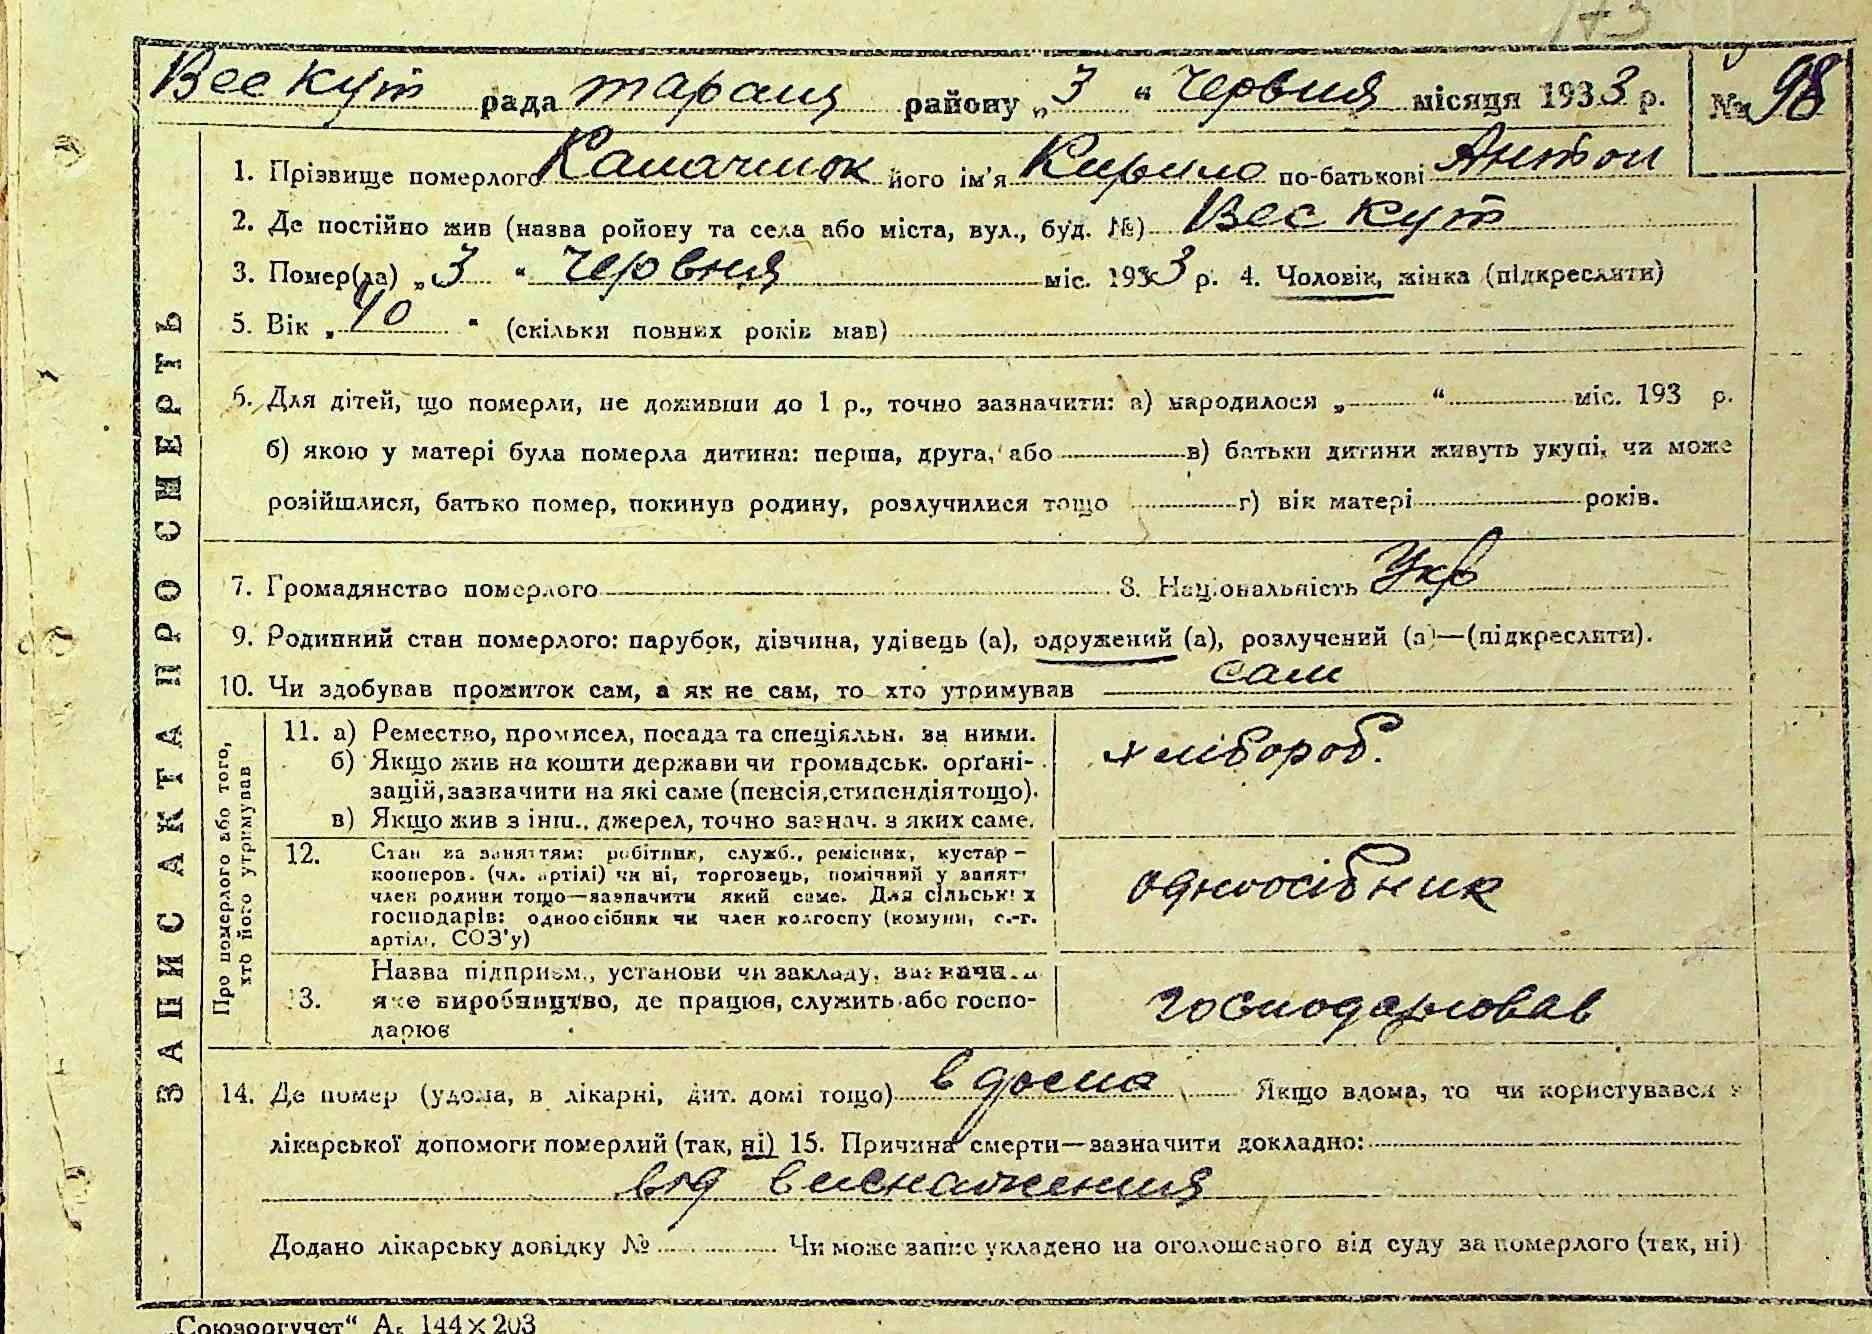 173
Вес кут рада тараща району „3“ Червня місяця 1933 р. № 98
1. Прізвище померлого його ім'я Кирило по-батькові Антон
2. Де постійно жив (назва ройону та села або міста, вул., буд. №) Вес кут
3. Помер(ла) „3“ Червня міс. 1933 р. 4. Чоловік, жінка (підкреслити)
5. Вік „ “ (скільки повних років мав)
6. Для дітей, що померли, не доживши до 1 р., точно зазначити: а) народилося „ “ міс. 193 р.
б) якою у матері була померла дитина: перша, друга, або в) батьки дитини живуть укупі, чи може
розійшлися, батько помер, покинув родину, розлучилися тощо г) вік матері років.
7. Громадянство померлого 8. Національність Укр
9. Родинний стан померлого: парубок, дівчина, удівець (а), одружений (а), розлучений (а)—(підкреслити).
10. Чи здобував прожиток сам, а як не сам, то хто утримував сам
ЗАПИС АКТА ПРО СМЕРТЬ
Про померлого або того,
хто його утримував
11. а) Ремество, промисел, посада та спеціяльн. за ними.
б) Якщо жив на кошти держави чи громадськ. орґані-
зацій, зазначити на які саме (пенсія, стипендія тощо).
в) Якщо жив з інш., джерел, точно зазнач. з яких саме.
хлібороб.
12. Стан за заняттям: робітник, служб., ремісник, кустар-
кооперов. (чл. артілі) чи ні, торговець, помічний у занят.
член родини тощо—зазначити який саме. Для сільських
господарів: одноосібник чи член колгоспу (комуни, с.-г.
артілі, СОЗ'у)
одноосібник
13. Назва підприєм., установи чи закладу, зазначила
яке виробництво, де працює, служить або госпо-
дарює
господарював
14. Де помер (удома, в лікарні, дит. домі тощо) вдома Якщо вдома, то чи користувався з
лікарської допомоги померлий (так, ні) 15. Причина смерти—зазначити докладно:
від виснаження
Додано лікарську довідку № Чи може запис укладено на оголошеного від суду за померлого (так, ні)
„Союзоргучет“ А₅ 144×203